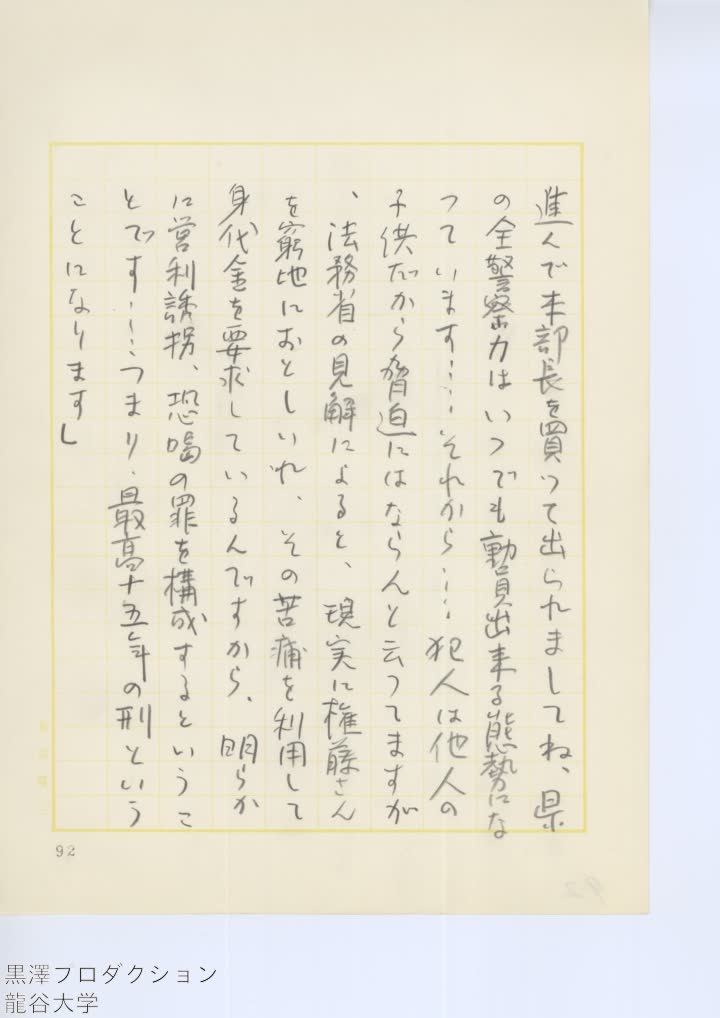 進んで本部長を買って出られましてね、県
の全警察力はいつでも動員出来る態勢にな
っています……それから……犯人は他人の
子供だから脅迫にはならんと云ってますが
、法務省の見解によると、現実に権藤さん
を窮地におとしいれ、その苦痛を利用して
身代金を要求しているんですから、明らか
に営利誘拐、恐喝の罪を構成するというこ
とです……つまり、最高十五年の刑という
ことになります」
92
92
黒澤プロダクション
龍谷大学